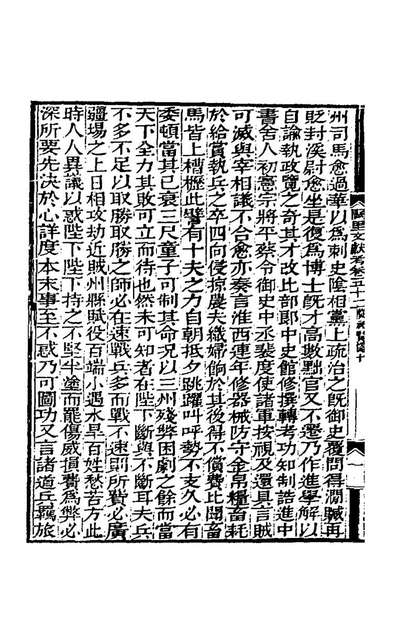 州司馬愈過華以爲刺史陰相黨上疏治之旣御史覆問得澗贓再
貶封溪尉愈坐是復爲博士旣才高數黜官又不遷乃作進學解以
自諭執政覽之奇其才改比部郎中史館修撰轉考功知制誥進中
書舍人初憲宗將平蔡令御史中丞裴度使諸軍按視及還具言賊
可滅與宰相議不合愈亦奏言淮西連年修器械防守金帛糧畜耗
於給賞執兵之卒四向侵掠農夫織婦餉於其後得不償費比聞畜
馬皆上槽櫪此譬有十夫之力自朝抵夕跳躍叫呼勢不支久必有
委頓當其已衰三尺童子可制其命況以三州殘弊困劇之餘而當
天下全力其敗可立而待也然未可知者在陛下斷與不斷耳夫兵
不多不足以取勝取勝之師必在速戰兵多而戰不速則所費必廣
疆場之上日相攻劫近賊州縣賦役百端小遇水旱百姓愁苦方此
時人人異議以惑陛下陛下持之不堅半塗而罷傷威損費爲弊必
深所要先決於心詳度本末事至不惑乃可圖功又言諸道兵羈旅